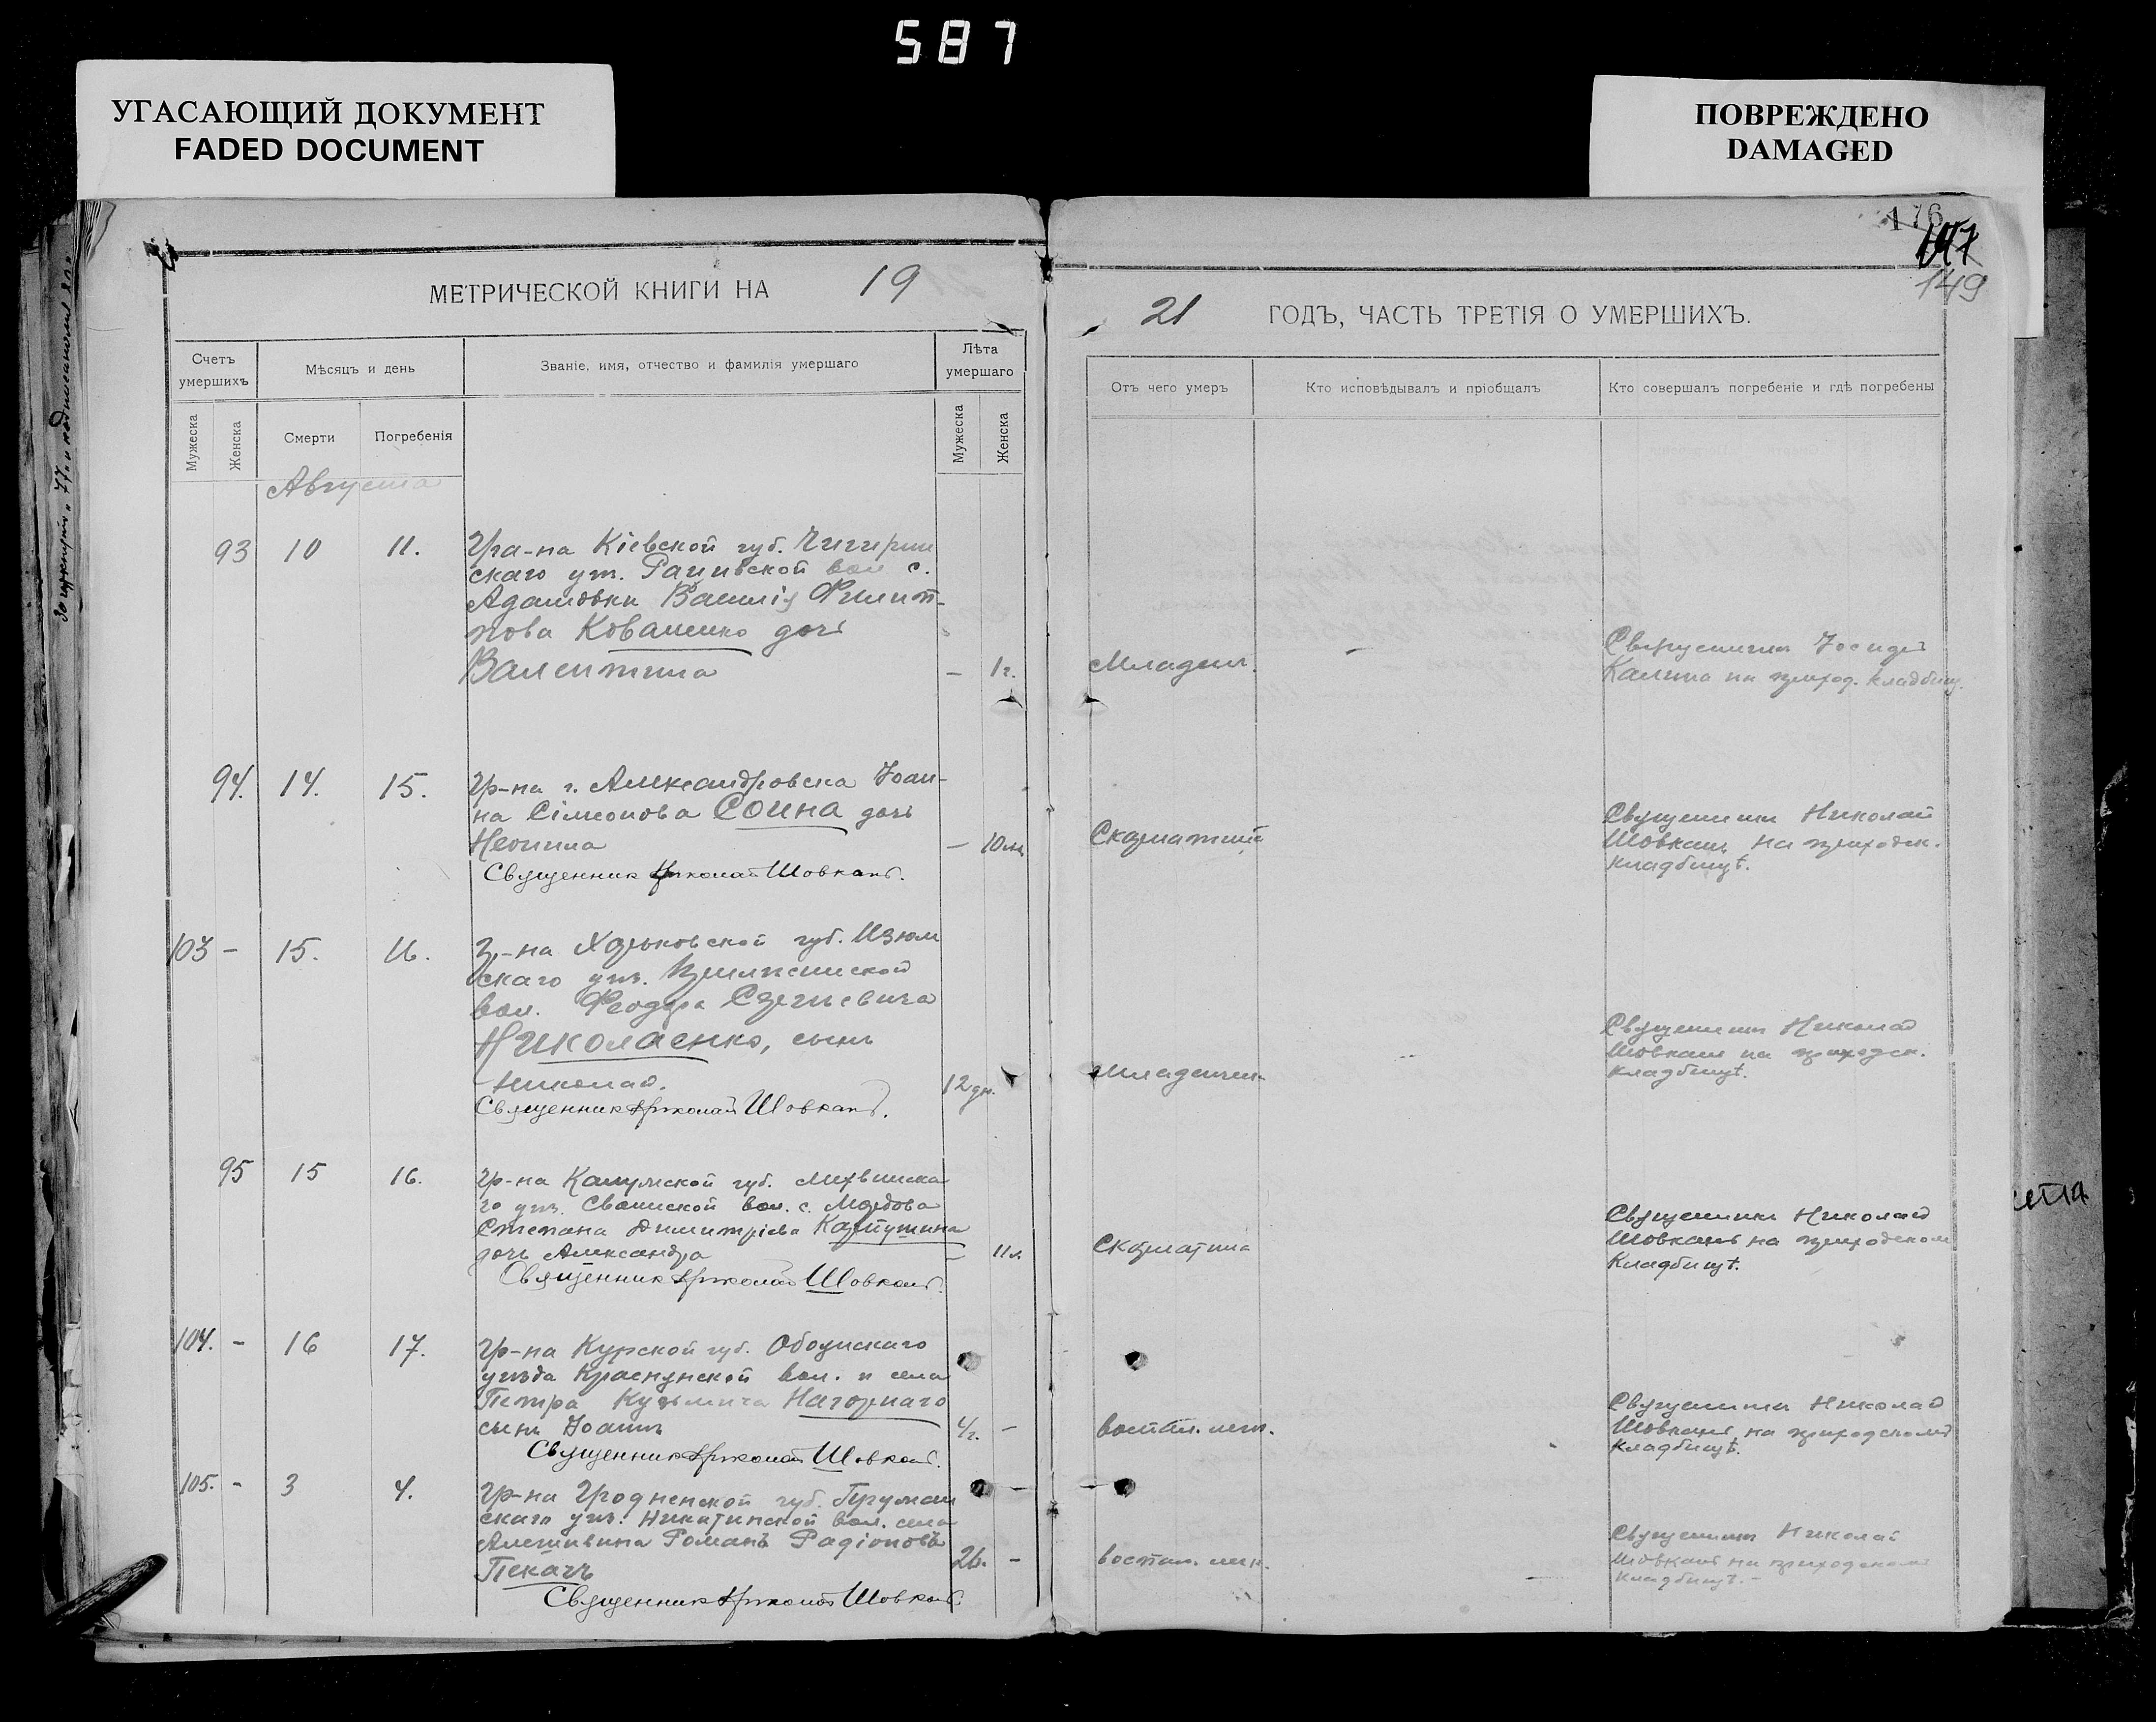 587
УГАСАЮЩИЙ ДОКУМЕНТ
FADED DOCUMENT
ПОВРЕЖДЕНО
DAMAGED
176
147
149
МЕТРИЧЕСКОЙ КНИГИ НА 19
21 ГОДЪ, ЧАСТЬ ТРЕТІЯ О УМЕРШИХЪ.
Счетъ умершихъ
Мѣсяцъ и день
Званіе, имя, отчество и фамилія умершаго
Лѣта умершаго
Мужеска
Женска
Смерти
Погребенія
Мужеска
Женска
Отъ чего умеръ
Кто исповѣдывалъ и пріобщалъ
Кто совершалъ погребеніе и гдѣ погребены
Августа
93 10 11.
Гра-на Кіевской губ. Чигирин
скаго уѣз. вол с.
Адамовки Василія Филип-
пова Коваленко дочь
Валентина
– 1г.
Младен.
–
Священник Іосиф
Калина на приход. кладбищ.
94. 14. 15.
Гр-на г. Александровска Іоан-
на Сімеонова Соина дочь
Неонила
– 10
Скарлатина
Священник Николай
Шовкань на приходск.
кладбищѣ.
Священник Николай Шовкань.
103 – 15. 16.
Гр-на Харьковской губ. Изюм
скаго уѣз.
вол. Феодора Сергіевича
Николаенко, сынъ
Николай.
12 дн.
младенч.
Священник Николай
Шовкань на приходск.
кладбищѣ.
Священник Николай Шовкань.
95 15 16.
Гр-на Калужской губ. Лихвинска
го уѣз. вол. с.
Степана Димитріева Карпушина
дочь Александра
– 11л.
Скарлатина
Священник Николай
Шовкань на приходском
кладбищѣ.
Священник Николай Шовкань.
104. – 16 17.
Гр-на Курской губ. Обоянскаго
уѣзда Краснянской вол. и села
Петра Кузьмича Нагорнаго
сынъ Іоаннъ
4г. –
воспал. легк.
Священник Николай
Шовкань на приходском
кладбищѣ.
Священник Николай Шовкань.
105. – 3 4.
Гр-на Гродненской губ.
скаго уѣз. вол. села
Романъ Радіоновъ
Пекачъ
26. –
воспал. легк.
–
Священник Николай
Шовкань на приходском
кладбищѣ. –
Священник Николай Шовкань.